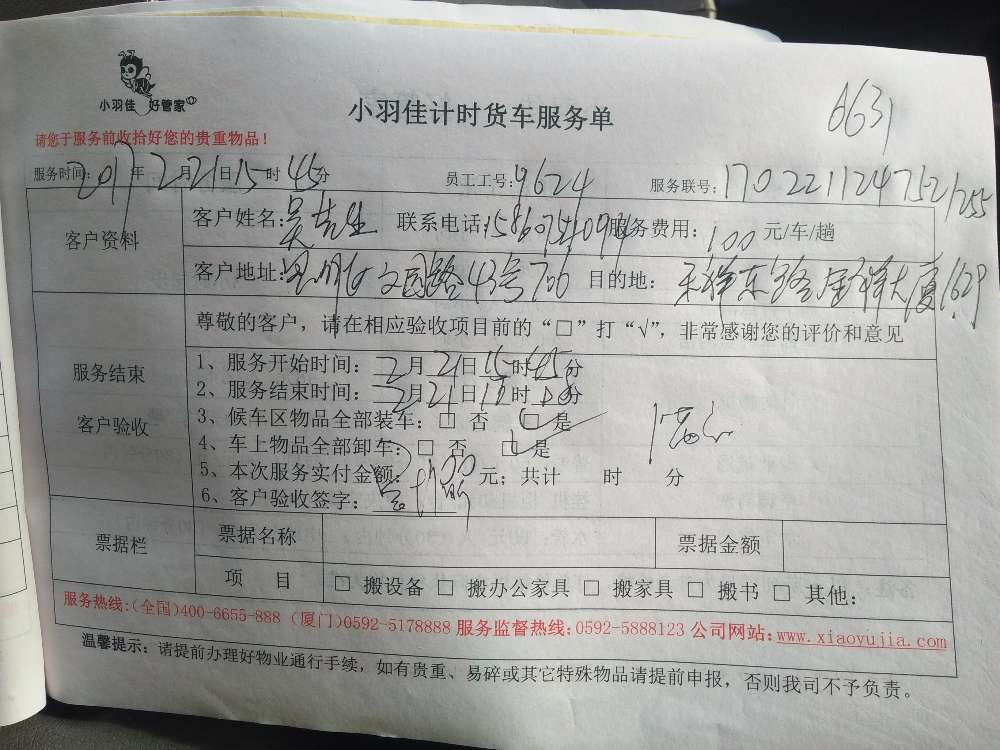 小羽佳 好管家
小羽佳计时货车服务单
6631
请您于服务前收拾好您的贵重物品！
服务时间：2017年2月21日15时45分 员工工号：9624 服务联号：170221124752/255
客户资料
客户姓名：吴先生 联系电话： 服务费用：100元/车/趟
客户地址：文园路43号706 目的地：禾祥东路金祥大厦1629
服务结束
客户验收
尊敬的客户，请在相应验收项目前的“□”打“√”，非常感谢您的评价和意见
1、服务开始时间：2月21日15时45分
2、服务结束时间：2月21日 时 分
3、候车区物品全部装车：□ 否 □是
4、车上物品全部卸车：□ 否 □是
5、本次服务实付金额：100元；共计 时 分
6、客户验收签字：
票据栏
票据名称 票据金额
项 目 □ 搬设备 □ 搬办公家具 □ 搬家具 □ 搬书 □ 其他：
服务热线：(全国)400-6655-888 (厦门)0592-5178888 服务监督热线：0592-5888123 公司网站：www.xiaoyujia.com
温馨提示：请提前办理好物业通行手续，如有贵重、易碎或其它特殊物品请提前申报，否则我司不予负责。